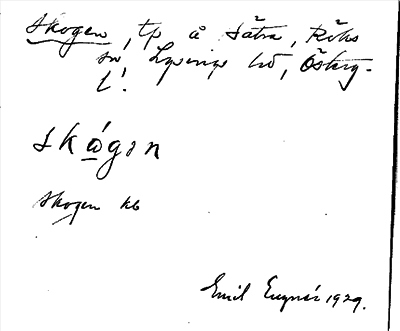 Skogen, tp å Sätra, Röks
sn, Lysings hd, Österg.
l.
skågen
Skogen kb
Emil 1929.